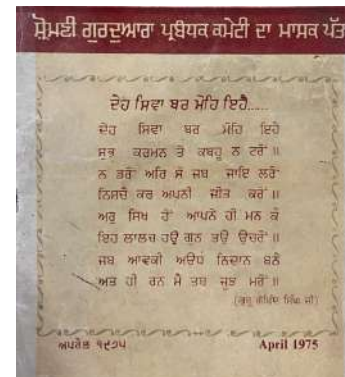 ਸ਼੍ਰੋਮਣੀ ਗੁਰਦੁਆਰਾ ਪ੍ਰਬੰਧਕ ਕਮੇਟੀ ਦਾ ਮਾਸਕ ਪੱਤ
ਦੇਹ ਸਿਵਾ ਬਰ ਮੋਹਿ ਇਹੈ......
ਦੇਹ ਸਿਵਾ ਬਰ ਮੋਹਿ ਇਹੈ
ਸੁਭ ਕਰਮਨ ਤੇ ਕਬਹੂ ਨ ਟਰੋਂ ॥
ਨ ਡਰੋਂ ਅਰਿ ਸੋ ਜਬ ਜਾਇ ਲਰੋਂ
ਨਿਸਚੈ ਕਰ ਅਪਨੀ ਜੀਤ ਕਰੋਂ ॥
ਅਰੁ ਸਿਖ ਹੋਂ ਆਪਨੇ ਹੀ ਮਨ ਕੋ
ਇਹ ਲਾਲਚ ਹਉ ਗੁਨ ਤਉ ਉਚਰੋਂ ॥
ਜਬ ਆਵਕੀ ਅਉਧ ਨਿਦਾਨ ਬਨੈ
ਅਤ ਹੀ ਰਨ ਮੈ ਤਬ ਜੂਝ ਮਰੋਂ ॥
(ਗੁਰੂ ਗੋਬਿੰਦ ਸਿੰਘ ਜੀ)
ਅਪਰੈਲ ੧੯੭੫ April 1975